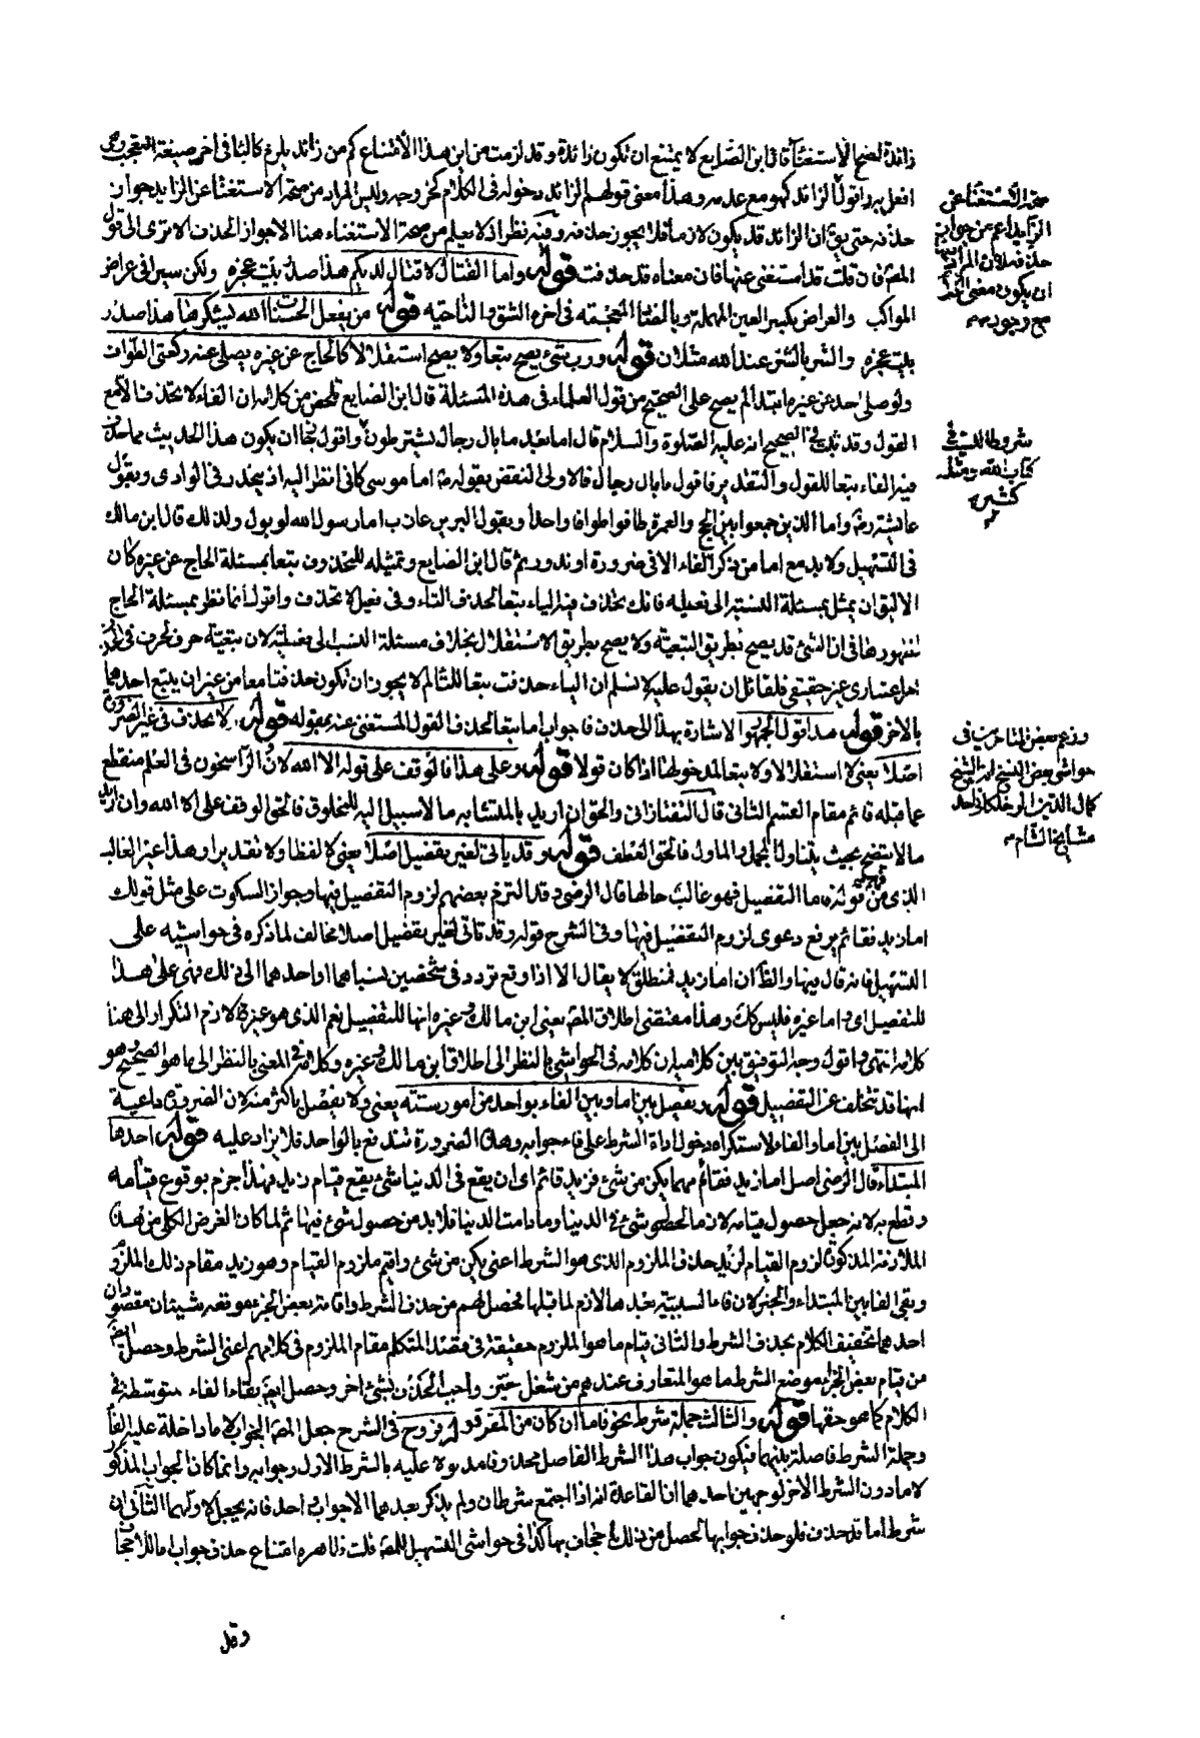 زائدة لصح الاستغناء قال ابن الضايع لا يمتنع ان تكون زائدة وقد لزمت من اين هذا الامتناع كم من زائد يلزم كالباء في اخر صيغة التعجب وهي
افعل به واقول الزائد كهو مع عدمه وهذا معنى قولهم الزائد دخوله في الكلام كخروجه وليس المراد من صحة الاستغناء عن الزايد جواز
حذفه حتى يق ان الزائد قد يكون لازما فلا يجوز حذفه وفيه نظر اذ لا يعلم من صحة الاستغناء هنا الا جواز الحذف الا ترى الى قول
المصـ فان قلت قد استغنى عنها فان معناه قد حذفت قوله واما القتال لا قتال لديكم هذا صدر بيت عجزه ولكن سيرا في عراض
المواكب والعراض بكسر العين المهملة وبالضاد المعجمة في اخره الشق والناحية قوله من يفعل الحسنات الله يشكرها هذا صدر
بيت عجزه والشر بالشر عند الله مثلان قوله ورب شيء يصح تبعا ولا يصح استقلالا كالحاج عن غيره يصلي عنه ركعتي الطواف
ولو صلى احد عن غيره ابتداء لم يصح على الصحيح من قول العلماء في هذه المسئلة قال ابن الضايع تلخص من كلامه ان الفاء لا تحذف الا مع
القول وقد ثبت في الصحيح انه عليه الصلوة والسلام قال اما بعد ما بال رجال يشترطون واقول يجاب ان يكون هذا الحديث مما حذف
فيه الفاء تبعا للقول والتقدير فاقول ما بال رجال فالاولى النقض بقوله صـ اما موسى كاني انظر اليه اذ ينحدر في الوادي وبقول
عايشة رضـ واما الذين جمعوا بين الحج والعمرة طافوا طوافا واحدا وبقول البرا بن عازب اما رسول الله لم يول ولذلك قال ابن مالك
في التسهيل ولا بد مع اما من ذكر الفاء الا في ضرورة او ندور ثم قال ابن الضايع وتمثيله للمحذوف تبعا بمسئلة الحاج عن غيره كان
الاليق ان يمثل بمسئلة النسبة الى فعيلة فانك تحذف فيه الياء تبعا لحذف التاء وفي فعيل لا تحذف واقول انما نظر بمسئلة الحاج
لظهورها في ان الشيء قد يصح بطريق التبعية ولا يصح بطريق الاستقلال بخلاف مسئلة النسب الى فعيلة لان تبعية حرف لحرف في الحذف
امر اعتباري غير حقيقي فلقائل ان يقول عليه لا نسلم ان الياء حذفت تبعا للتاء لم لا يجوز ان تكون حذفتا معا من غير ان يتبع احدهما
بالاخر قوله هذا قول الجمهور الاشارة بهذا الى حذف فاء جواب اما تبعا لحذف القول المستغنى عنه بمقوله قوله لا يحذف في غير الضرورة
اصلا يعني لا استقلالا ولا تبعا لمدخولها اذا كان قولا قوله وعلى هذا فالوقف على قوله الا الله لان الراسخون في العلم منقطع
عما قبله قائم مقام القسم الثاني قال التفتازاني والحق ان اريد بالمتشابه ما لا سبيل اليه للمخلوق فالحق الوقف على الا الله وان اريد
ما لا يتضح بحيث يتناول المجمل والماول فالحق العطف قوله وقد ياتي لغير تفصيل اصلا يعني لا لفظا ولا تقديرا وهذا غير الغالب
الذي من قوله واما التفصيل فهو غالب حالها قال الرضي وقد التزم بعضهم لزوم التفصيل فيها وجواز السكوت على مثل قولك
اما زيد فقائم يرفع دعوى لزوم التفصيل فيها وفي الشرح قوله وقد تاتي لغير تفصيل اصلا مخالف لما ذكره في حواشيه على
التسهيل فانه قال فيها والظـ ان اما زيد فمنطلق لا يقال الا اذا وقع تردد في شخصين نسباهما او احدهما الى ذلك فهي على هذا
للتفصيل اي واما غيره فليس كك وهذا مقتضى اطلاق المصـ يعني ابن مالك وغيره انها للتفصيل نعم الذي هو غيره لازم التكرار الى هنا
كلامه انتهى واقول وجه التوفيق بين كلاميه ان كلامه في الحواشي بالنظر الى اطلاق ابن مالك وغيره وكلامه في المغني بالنظر الى ما هو الصحيح وهو
انها قد تتخلف عن التفصيل قوله ويفصل بين اما وبين الفاء بواحد من امور ستة يعني ولا يفصل باكثر منه لان الضرورة داعية
الى الفصل بين اما والفاء لاستكراه دخول اداة الشرط على فاء جوابه وهذه الضرورة تندفع بالواحد فلا يزاد عليه قوله احدها
المبتداء قال الرضي اصل اما زيد فقائم مهما يكن من شيء فزيد قائم اي ان يقع في الدنيا شيء يقع قيام زيد فهذا جزم بوقوع قيامه
وقطع به لانه جعل حصول قيامه لازما لحصول شيء في الدنيا وما دامت الدنيا فلا بد من حصول شيء فيها ثم لما كان الغرض الكلي من هذه
الملازمة المذكورة لزوم القيام لزيد حذف الملزوم الذي هو الشرط اعني يكن من شيء واقيم ملزوم القيام وهو زيد مقام ذلك الملزوم
وبقي الفاء بين المبتداء والخبر لان فاء السببية بعدها لازم لما قبلها فحصل لهم من حذف الشرط واقامة بعض الجزء موقعه شيئان مقصودان
احدهما تخفيف الكلام بحذف الشرط والثاني قيام ما هو الملزوم حقيقة في قصد المتكلم مقام الملزوم في كلامهم اعني الشرط وحصل ايضا
من قيام بعض الجزاء موضع الشرط ما هو المتعارف عندهم من شغل حيز واجب الحذف بشيء اخر وحصل ايضا بقاء الفاء متوسطة في
الكلام كما هو حقها قوله والثالث جملة شرط نحو فاما ان كان من المقربين فروح في الشرح جعل المصـ الجواب لاما داخلة عليه الفاء
وجملة الشرط فاصلة بينهما فيكون جواب هذا الشرط الفاصل محذوفا مدلولا عليه بالشرط الاول وجوابه وانما كان الجواب المذكور
لاما دون الشرط الاخر لوجهين احدهما ان القاعدة انه اذا اجتمع شرطان ولم يذكر بعدهما الا جواب واحد فانه يجعل لاولهما الثاني ان
شرط اما قد حذف فلو حذف جوابها لحصل من ذلك اجحاف بها كذا في حواشي التسهيل للمصـ قلت ظاهره امتناع حذف جواب اما للاجحاف
صحة الاستغناء عن
الزايد اعم من جواز
حذفه لان المراد
ان يكون معنى الحذف
مع وجوده
شروطا ليست في
كتاب الله ومثله
كثير
وزعم بعض المتاخرين في
حواشي بعض النسخ انه الشيخ
كمال الدين الزملكاني احد
مشايخ الشام
وقد